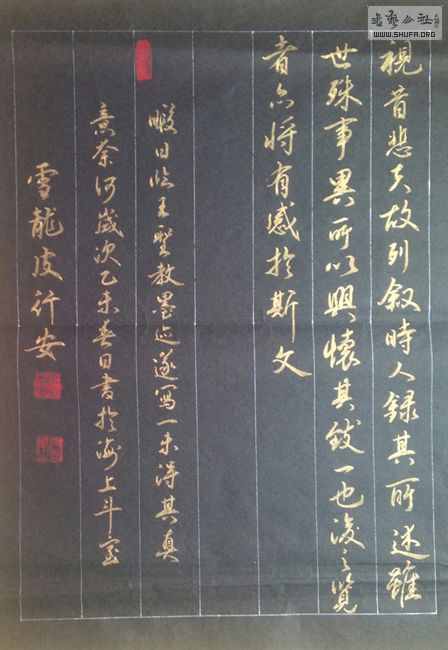 視昔悲夫故列叙時人録其所述雖
世殊事異所以興懷其致一也後之覽
者亦将有感於斯文
暇日临王聖教墨迹遂寫一未得其真
意奈何歲次乙未春日書於海上斗室
雪龍皮行安
WWW.SHUFA.ORG